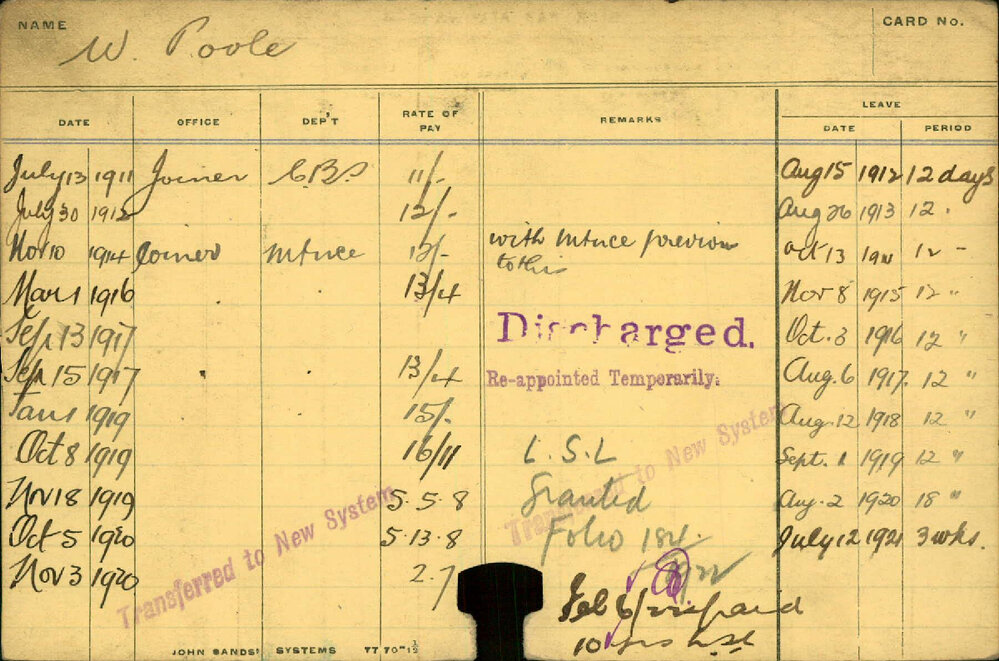 NAME W. Poole CARD No.
LEAVE
DATE OFFICE DEP'T RATE OF PAY REMARKS DATE PERIOD
July 13 1911 Joiner 11/- Aug 15 1912 12 days
July 30 1912 12/- Aug 26 1913 12 "
Nov 10 1914 Joiner Mtnce 12/- with Mtnce previous Oct 13 12 "
to this
Mar 1 1916 13/4 Nov 8 1915 12 "
Sep 13 1917 Discharged. Oct. 3 1916 12 "
Sep 15 1917 " " 13/4 Re-appointed Temporarily. Aug. 6 1917 12 "
Jan 1 1919 15/- Aug. 12 1918 12 "
Oct 8 1919 16/11 L.S.L Sept. 1 1919 12 "
Nov 18 1919 5.5.8 Granted Aug. 2 1920 18 "
Oct 5 1920 5.13.8 Folio 184 July 12 1921 3 wks.
Nov 3 1920 2.7
Feb 6/ paid
10 yrs
Transferred to New System
Transferred to New System
JOHN SANDS' SYSTEMS